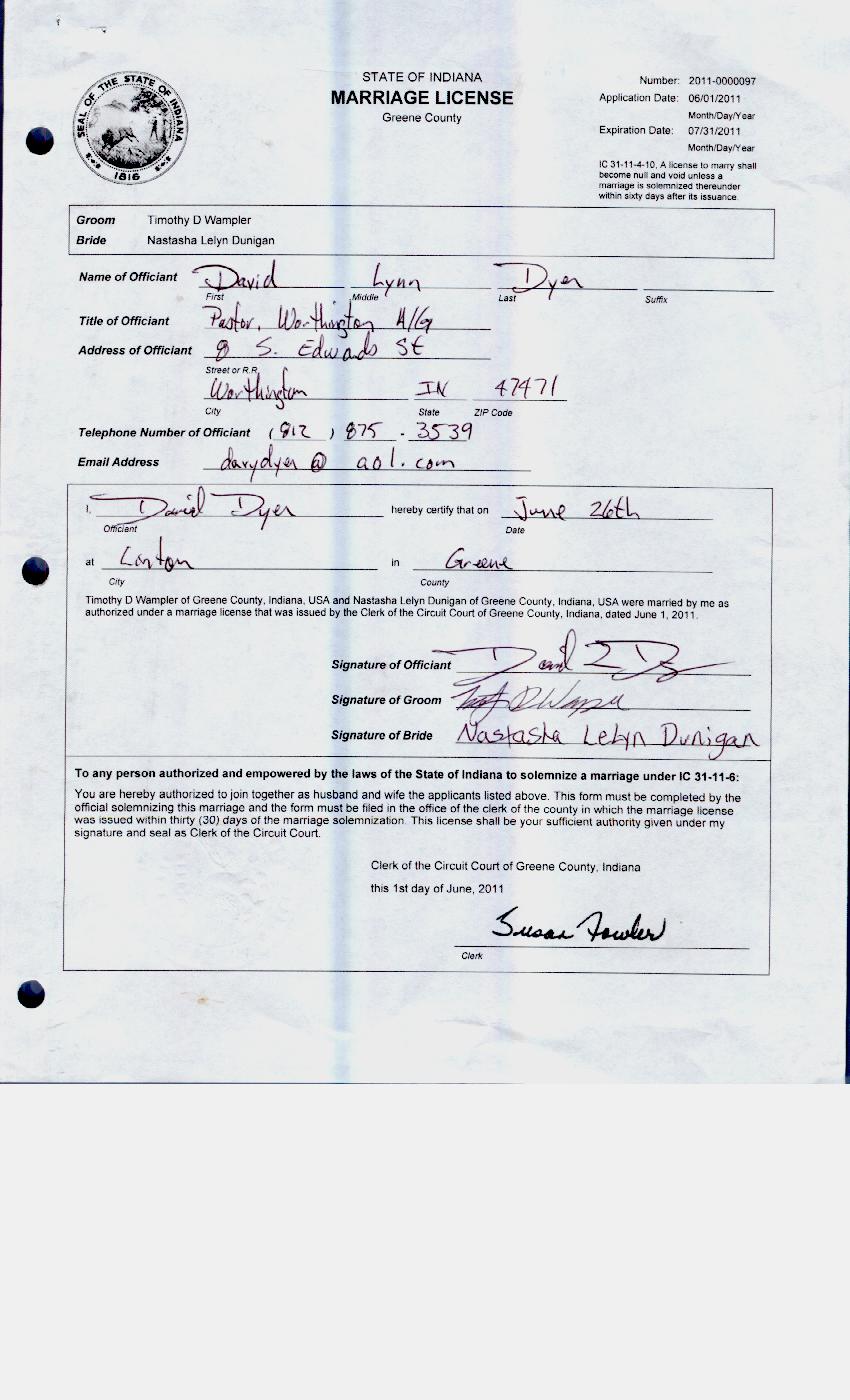 SEAL OF THE STATE OF INDIANA
1816
STATE OF INDIANA
MARRIAGE LICENSE
Greene County
Number: 2011-0000097
Application Date: 06/01/2011
Month/Day/Year
Expiration Date: 07/31/2011
Month/Day/Year
IC 31-11-4-10, A license to marry shall
become null and void unless a
marriage is solemnized thereunder
within sixty days after its issuance.
Groom Timothy D Wampler
Bride Nastasha Lelyn Dunigan
Name of Officiant David Lynn Dyer
First Middle Last Suffix
Title of Officiant Pastor, Worthington A/G
Address of Officiant 8 S. Edwards St
Street or R.R.
Worthington IN 47471
City State ZIP Code
Telephone Number of Officiant (812) 875-3539
Email Address davydyer@aol.com
I, David Dyer hereby certify that on June 26th
Officiant Date
at Linton in Greene
City County
Timothy D Wampler of Greene County, Indiana, USA and Nastasha Lelyn Dunigan of Greene County, Indiana, USA were married by me as
authorized under a marriage license that was issued by the Clerk of the Circuit Court of Greene County, Indiana, dated June 1, 2011.
Signature of Officiant David L Dyer
Signature of Groom
Signature of Bride Nastasha Lelyn Dunigan
To any person authorized and empowered by the laws of the State of Indiana to solemnize a marriage under IC 31-11-6:
You are hereby authorized to join together as husband and wife the applicants listed above. This form must be completed by the
official solemnizing this marriage and the form must be filed in the office of the clerk of the county in which the marriage license
was issued within thirty (30) days of the marriage solemnization. This license shall be your sufficient authority given under my
signature and seal as Clerk of the Circuit Court.
Clerk of the Circuit Court of Greene County, Indiana
this 1st day of June, 2011
Susan Fowler
Clerk